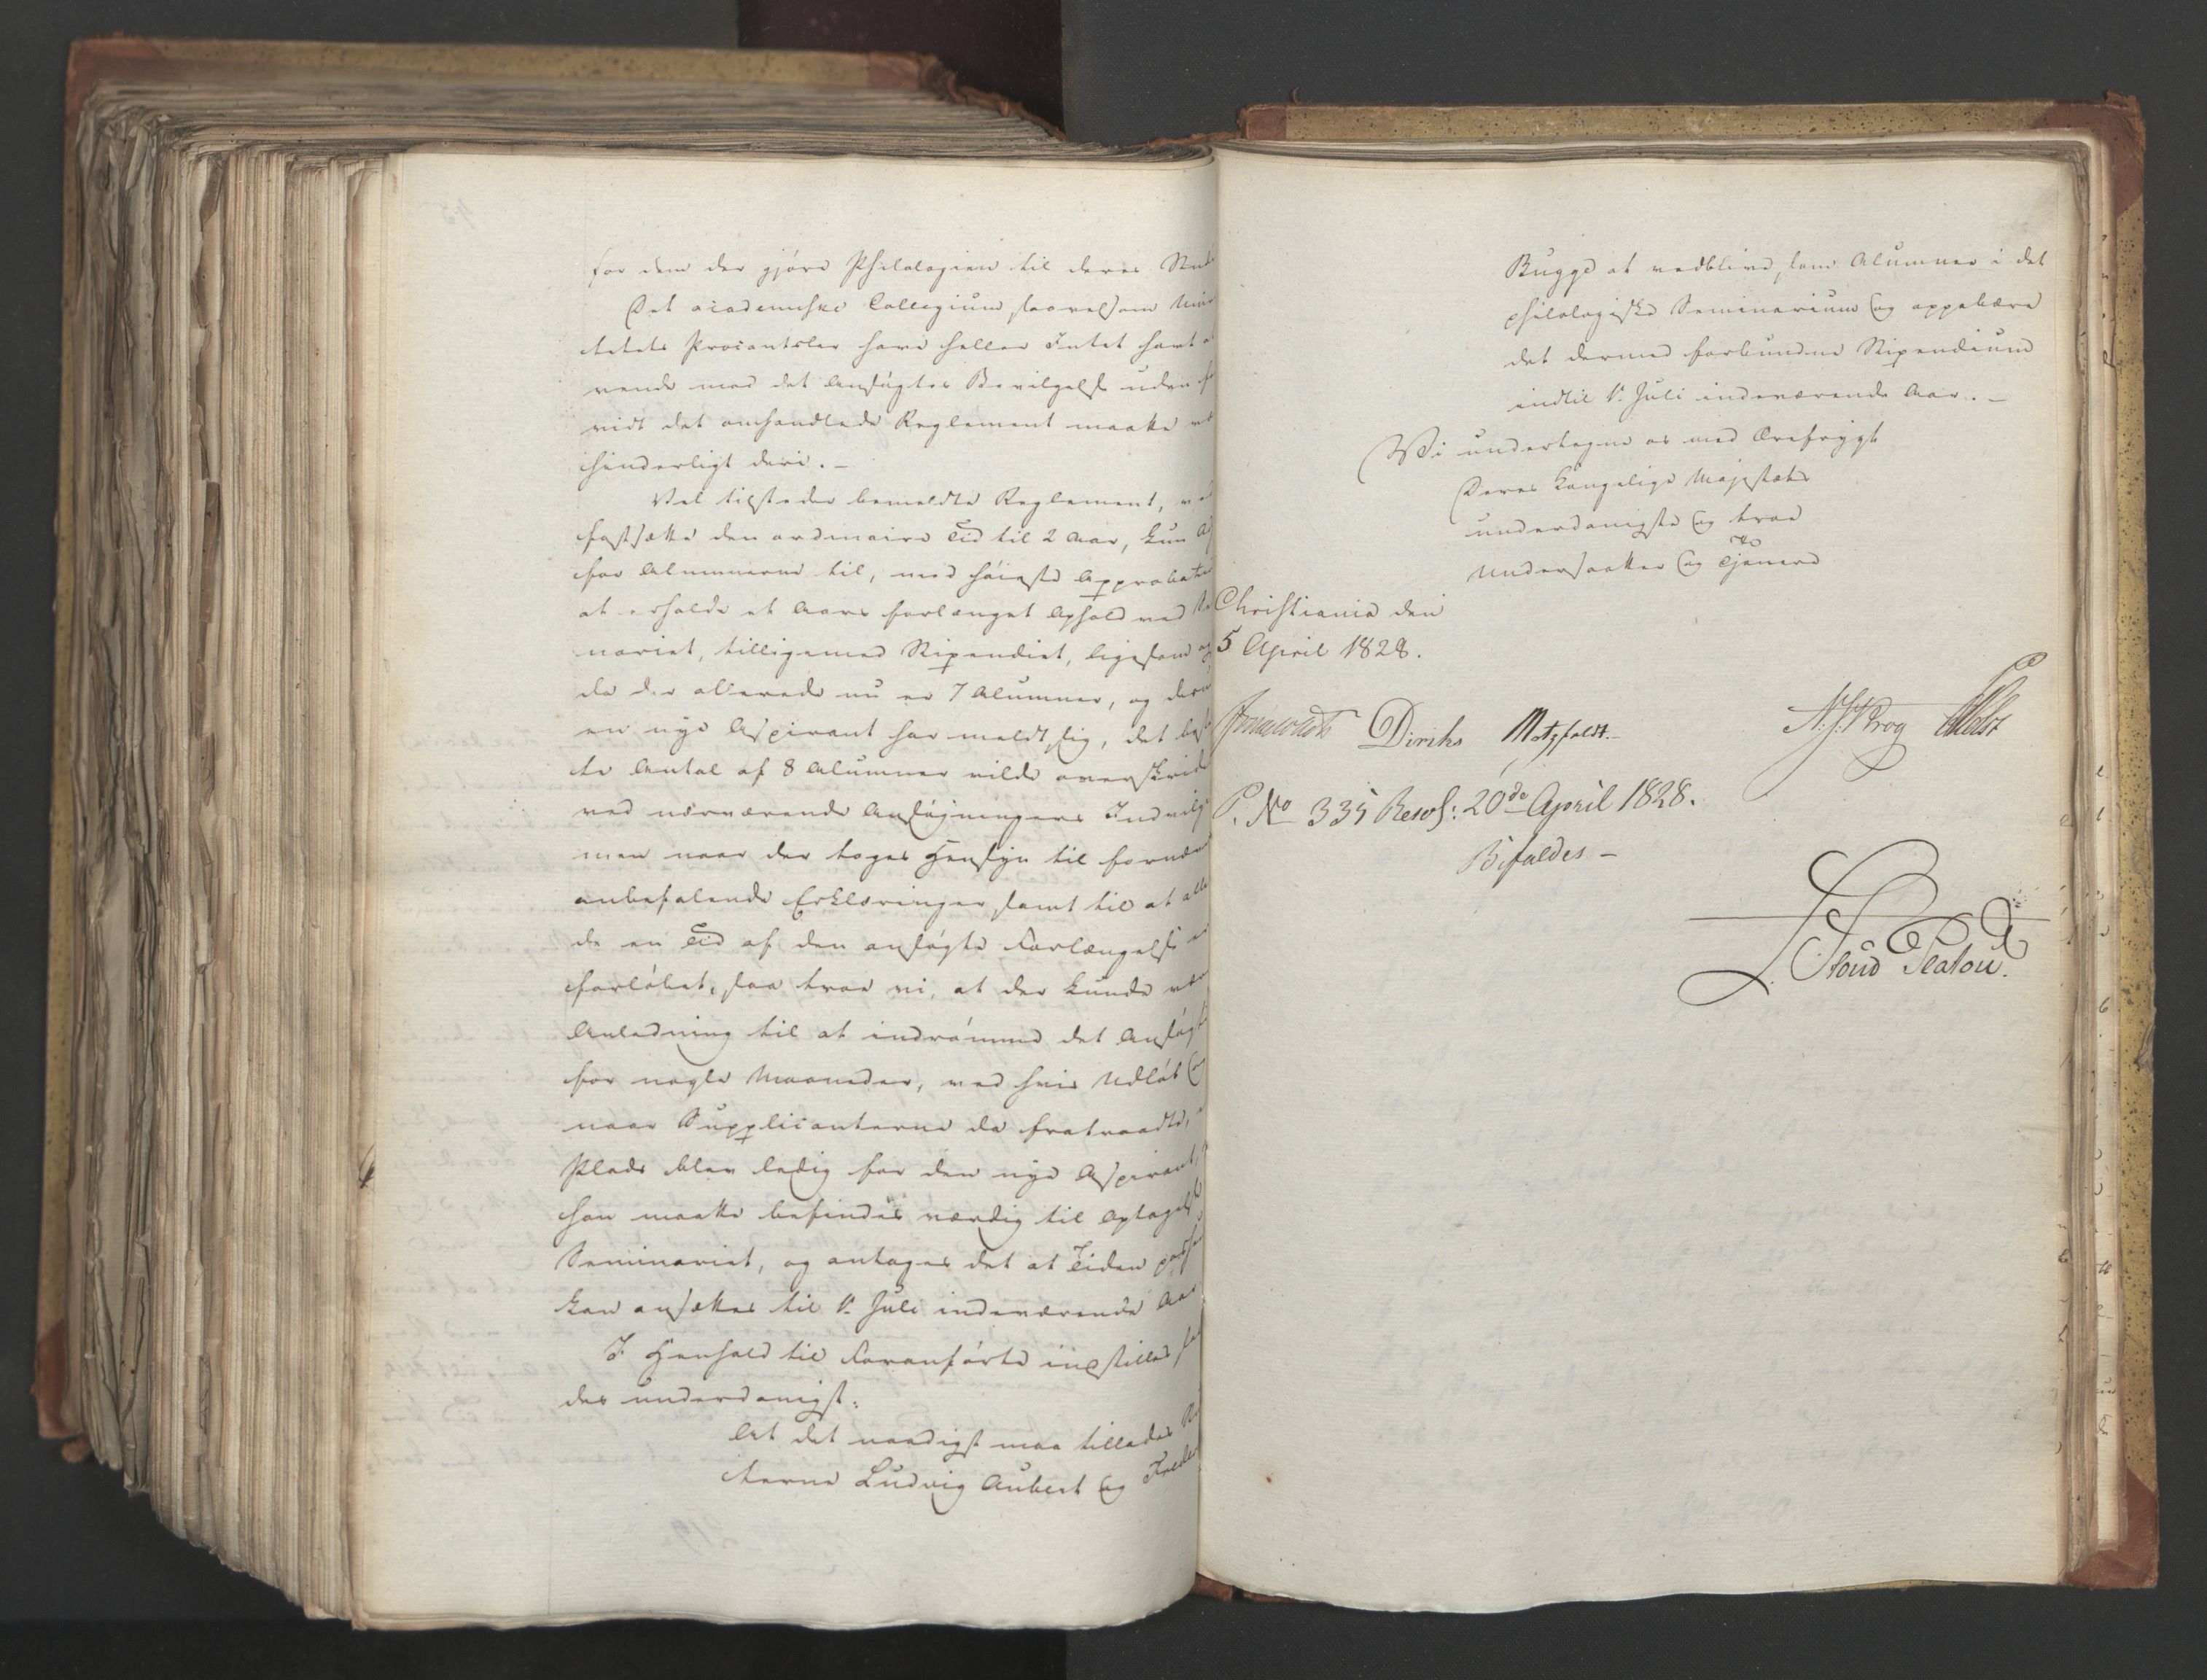 for dem der gjøre Philologien til deres Stud
Det academiske Collegium saavelsom Univ
tetets Procantsler have heller Intet havt at
vende mod det Ansøgtes Bevilgelse uden for
vidt det omhandlede Reglement maatte væ
hinderligt deri. –
Vel tilsteder bemeldte Reglement, ved
fastsætte den ordinaire Tid til 2 Aar, kun Ad
for Alumnerne til, med høieste Approbation
at erholde et Aars forlænget Ophold ved Se
nariet, tilligemed Stipendiet, ligesom og
da der allerede nu er 7 Alumner, og des
en nye Aspirant har meldt sig, det bes
te Antal af 8 Alumner vilde overskride
ved nærværende Ansøgningers Indvilg
men naar der toges Hensyn til fornæv
anbefalende Erklæringer samt til at alle
de en Tid af den ansøgte Forlængelse er
forløbet, saa troe vi, at der kunde være
Anledning til at indrømme det Ansøgte
for nogle Maaneder, ved hvis Udløb og
naar Supplicanterne da fratraadte,
Plads blev ledig for den nye Aspirant,
han maatte befindes værdig til Optagelse
Seminariet, og antages det at Tiden pas
kan ansættes til 1ste Juli indeværende Aar
I Henhold til Foranførte indstilles saa
des underdanigst:
At det naadigst maa tillades St
terne Ludvig Aubert og Freder
Bugge at vedblive, som Alumner i det
philologiske Seminarium og oppebære
det dermed forbundne Stipendium
indtil 1ste Juli indeværende Aar. –
Vi undertegne os med Ærefrygt
Deres Kongelige Majestæts
underdanigste og troe
Undersaatter og Tjenere
Christiania den
5 April 1828.
Diriks Motzfeldt. N. J. Krog
P. No 335 Resol: 20de April 1828.
Bifaldes –
Due Platou.